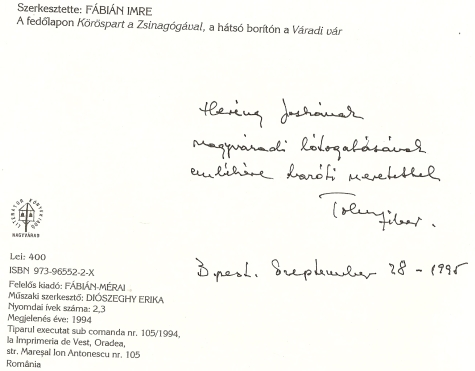 Szerkesztette: FÁBIÁN IMRE
A fedőlapon Köröspart a Zsinagógával, a hátsó borítón a Váradi vár
Hering Jóskának
nagyváradi látogatásának
emlékére baráti szeretettel
B.pest. Szeptember 28 - 1995
LITERATOR KÖNYVKIADÓ
NAGYVÁRAD
Lei: 400
ISBN 973-96552-2-X
Felelős kiadó: FÁBIÁN-MÉRAI
Műszaki szerkesztő: DIÓSZEGHY ERIKA
Nyomdai ívek száma: 2,3
Megjelenés éve: 1994
Tiparul executat sub comanda nr. 105/1994,
la Imprimeria de Vest, Oradea,
str. Mareşal Ion Antonescu nr. 105
România